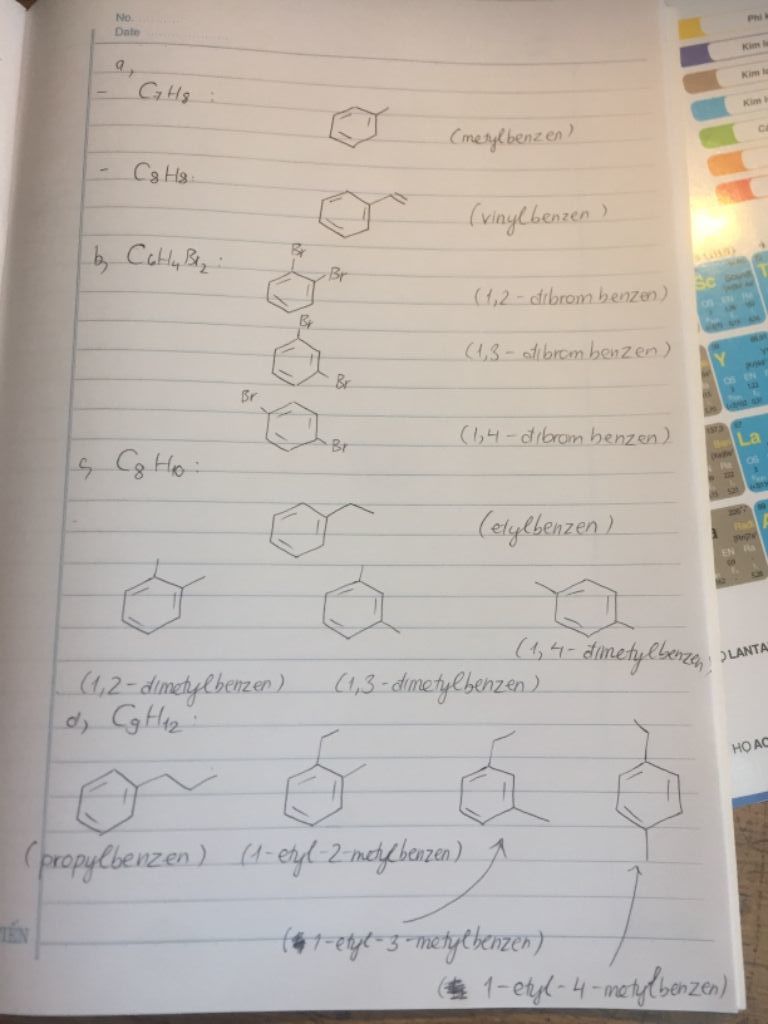 No.
Date
a,
- C7H8 :
(metylbenzen)
- C8H8:
(vinylbenzen)
b, C6H4Br2 :
Br
Br
(1,2 - đibrom benzen)
Br
Br
(1,3 - đibrom benzen)
Br
Br
(1,4 - đibrom benzen)
c, C8H10 :
(etylbenzen)
(1,2 - đimetylbenzen)
(1,3 - đimetylbenzen)
(1,4 - đimetylbenzen)
d, C9H12 :
(propylbenzen)
(1-etyl-2-metylbenzen)
(1-etyl-3-metylbenzen)
(1-etyl-4-metylbenzen)
TIẾN
Phi k
Kim lo
Kim l
Sc
Y
La
LANTA
HỌ AC